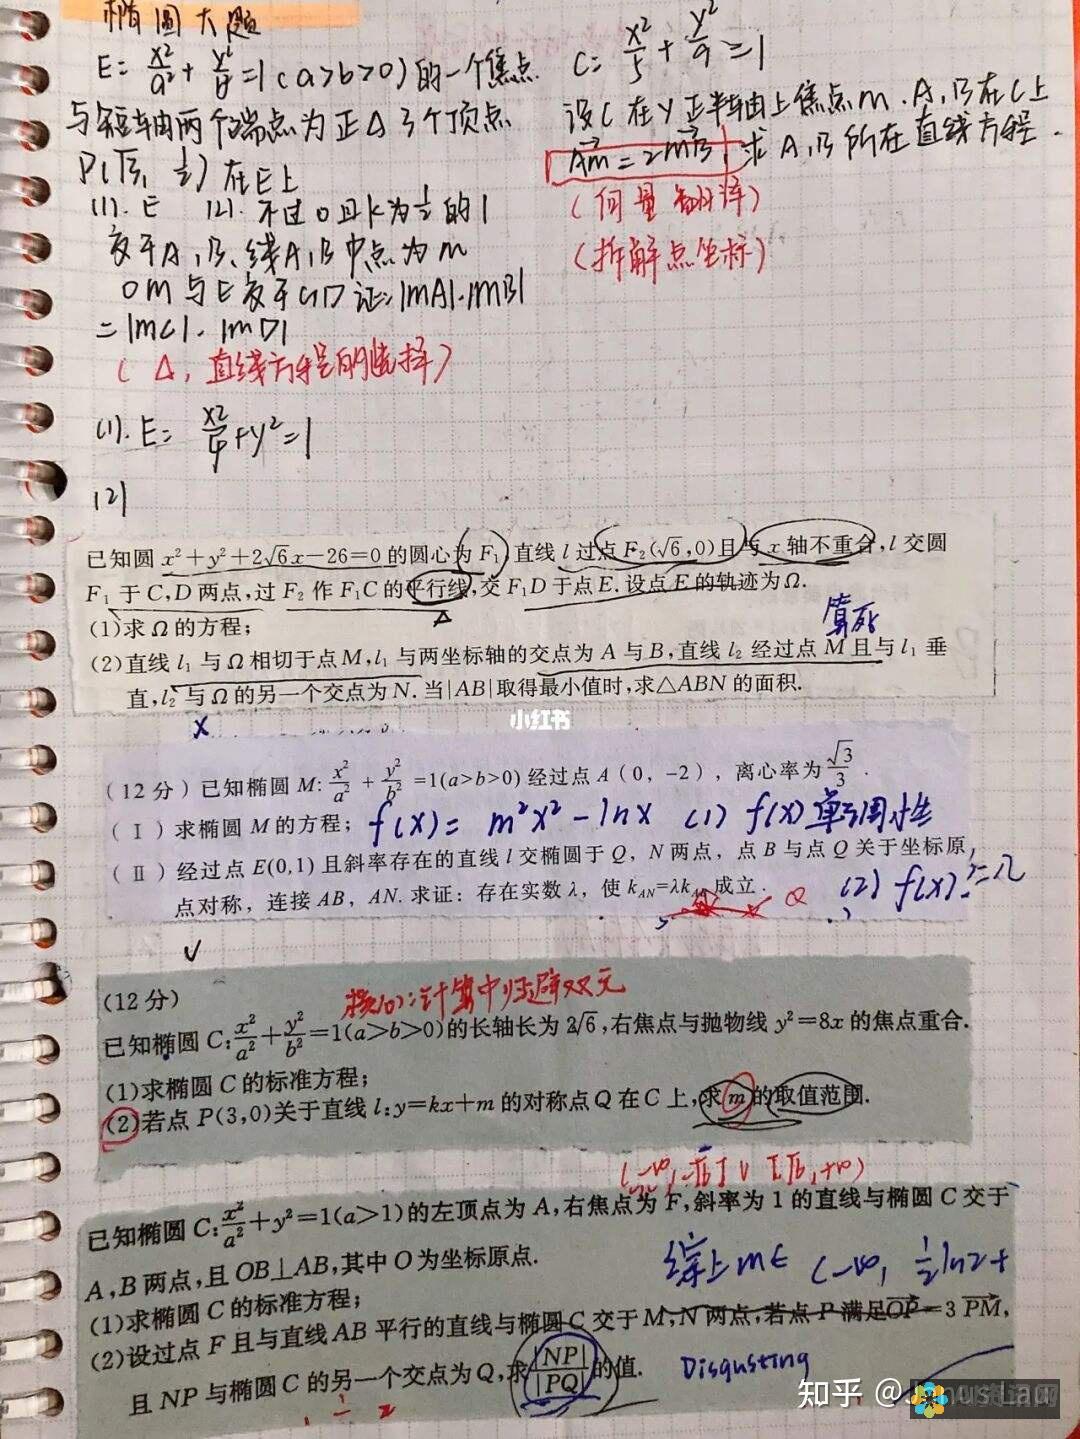 椭圆大题
E: x²/a² + y²/b² =1 (a>b>0) 的一个焦点
与短轴两个端点为正△3个顶点
P(√3, 1/2) 在E上
(1). E (2). 不过O且k为1/2的l
交于A, B, 线A, B中点为m
OM与E交于C, D 证: |MA|·|MB|
= |MC|·|MD|
(△, 直线方程的选择)
(1). E: x²/4 + y² = 1
(2)
C: x²/5 + y²/9 = 1
设C在y正半轴上焦点m. A, B在C上
AM = 2MB, 求A, B所在直线方程.
(向量翻译)
(拆解点坐标)
已知圆 x²+y²+2√6x-26=0 的圆心为 F₁, 直线 l 过点 F₂(√6,0)且与 x 轴不重合, l 交圆
F₁ 于 C,D 两点,过 F₂ 作 F₁C 的平行线,交 F₁D 于点 E. 设点 E 的轨迹为 Ω.
(1)求 Ω 的方程;
算死
(2)直线 l₁ 与 Ω 相切于点 M, l₁ 与两坐标轴的交点为 A 与 B,直线 l₂ 经过点 M 且与 l₁ 垂
直, l₂ 与 Ω 的另一个交点为 N. 当|AB|取得最小值时,求△ABN 的面积.
小红书
(12分) 已知椭圆 M: x²/a² + y²/b² =1(a>b>0) 经过点 A (0, -2), 离心率为 √3/3.
(Ⅰ) 求椭圆 M 的方程; f(x) = m²x² - lnx (1) f(x) 单调性
(Ⅱ) 经过点 E(0,1) 且斜率存在的直线 l 交椭圆于 Q, N 两点, 点 B 与点 Q 关于坐标原
点对称, 连接 AB, AN. 求证: 存在实数 λ, 使 k_AN=λk 成立. Q (2) f(x)
(12分)
核心: 计算中归避双元
已知椭圆 C: x²/a² + y²/b² =1(a>b>0)的长轴长为 2√6,右焦点与抛物线 y²=8x 的焦点重合.
(1)求椭圆 C 的标准方程;
(2)若点 P(3,0)关于直线 l: y=kx+m 的对称点 Q 在 C 上,求 m 的取值范围.
已知椭圆 C: x²/a² + y²=1(a>1)的左顶点为 A,右焦点为 F,斜率为 1 的直线与椭圆 C 交于
A,B 两点,且 OB⊥AB,其中 O 为坐标原点.
综上 m∈ (-∞, 1/2 ln2+
(1)求椭圆 C 的标准方程;
(2)设过点 F 且与直线 AB 平行的直线与椭圆 C 交于 M,N 两点,若点 P 满足OP=3 PM,
且 NP 与椭圆 C 的另一个交点为 Q,求 |NP|/|PQ| 的值.
Disgusting
知乎